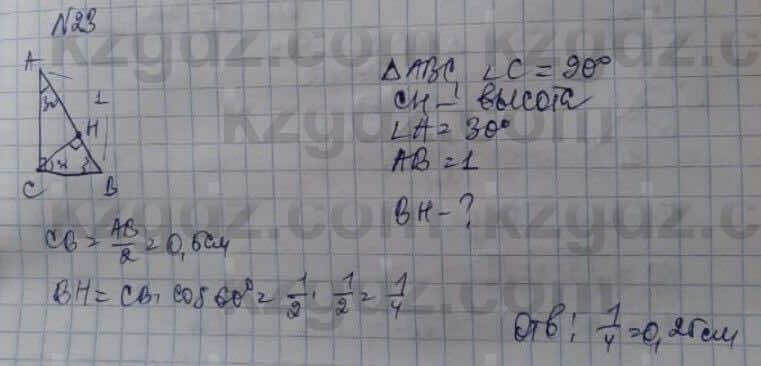 N23
A
30
1
H
C
B
△ABC ∠C = 90°
CH - высота
∠A = 30°
AB = 1
BH - ?
CB = AB/2 = 0,5см
BH = CB · cos 60° = 1/2 · 1/2 = 1/4
Отв: 1/4 = 0,25см
kzgdz.com